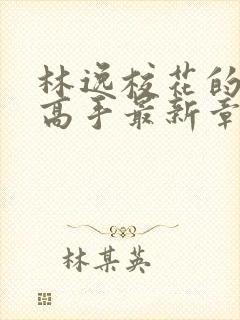 林逸校花的
高手最新章
林某英